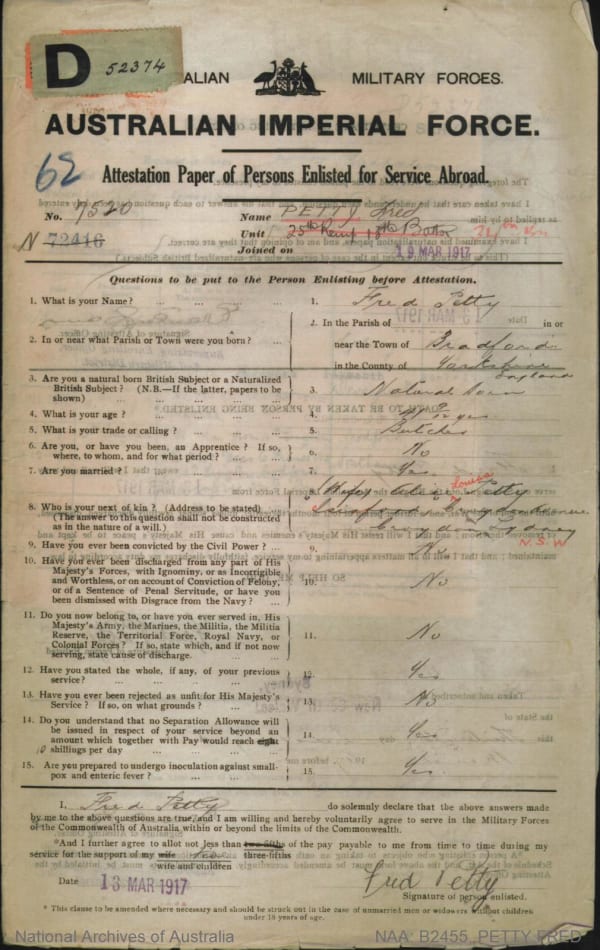 D 52374
ALIAN MILITARY FORCES.
AUSTRALIAN IMPERIAL FORCE.
62
Attestation Paper of Persons Enlisted for Service Abroad.
No. 7520 Name PETTY Fred
N 72416 Unit 25th Reinf 18th Battn
Joined on 19 MAR 1917
Questions to be put to the Person Enlisting before Attestation.
1. What is your Name? ... ... ... 1. Fred Petty
2. In or near what Parish or Town were you born? ... 2. In the Parish of in or
near the Town of Bradford
in the County of Yorkshire England
3. Are you a natural born British Subject or a Naturalized
British Subject? (N.B.—If the latter, papers to be
shown) ... ... ... 3. Natural born
4. What is your age? ... ... ... 4.
5. What is your trade or calling? ... ... 5. Butcher
6. Are you, or have you been, an Apprentice? If so,
where, to whom, and for what period? ... 6. No
7. Are you married? ... ... ... 7. Yes
8. Who is your next of kin? (Address to be stated)
(The answer to this question shall not be constructed
as in the nature of a will.) 8. Wife Louisa Petty
Croydon Sydney
N.S.W
9. Have you ever been convicted by the Civil Power? ... 9. No
10. Have you ever been discharged from any part of His
Majesty's Forces, with Ignominy, or as Incorrigible
and Worthless, or on account of Conviction of Felony,
or of a Sentence of Penal Servitude, or have you
been dismissed with Disgrace from the Navy? ... 10. No
11. Do you now belong to, or have you ever served in, His
Majesty's Army, the Marines, the Militia, the Militia
Reserve, the Territorial Force, Royal Navy, or
Colonial Forces? If so, state which, and if not now
serving, state cause of discharge. 11. No
12. Have you stated the whole, if any, of your previous
service? ... ... ... 12. Yes
13. Have you ever been rejected as unfit for His Majesty's
Service? If so, on what grounds? ... 13. No
14. Do you understand that no Separation Allowance will
be issued in respect of your service beyond an
amount which together with Pay would reach eight
10 shillings per day ... ... ... 14. Yes
15. Are you prepared to undergo inoculation against small-
pox and enteric fever? ... ... ... 15. Yes
I, Fred Petty do solemnly declare that the above answers made
by me to the above questions are true, and I am willing and hereby voluntarily agree to serve in the Military Forces
of the Commonwealth of Australia within or beyond the limits of the Commonwealth.
*And I further agree to allot not less than two-fifths of the pay payable to me from time to time during my
three-fifths
service for the support of my wife
wife and children
Date 13 MAR 1917 Fred Petty
Signature of person enlisted.
* This clause to be amended where necessary and should be struck out in the case of unmarried men or widowers without children
under 18 years of age.
National Archives of Australia NAA: B2455, PETTY FRED